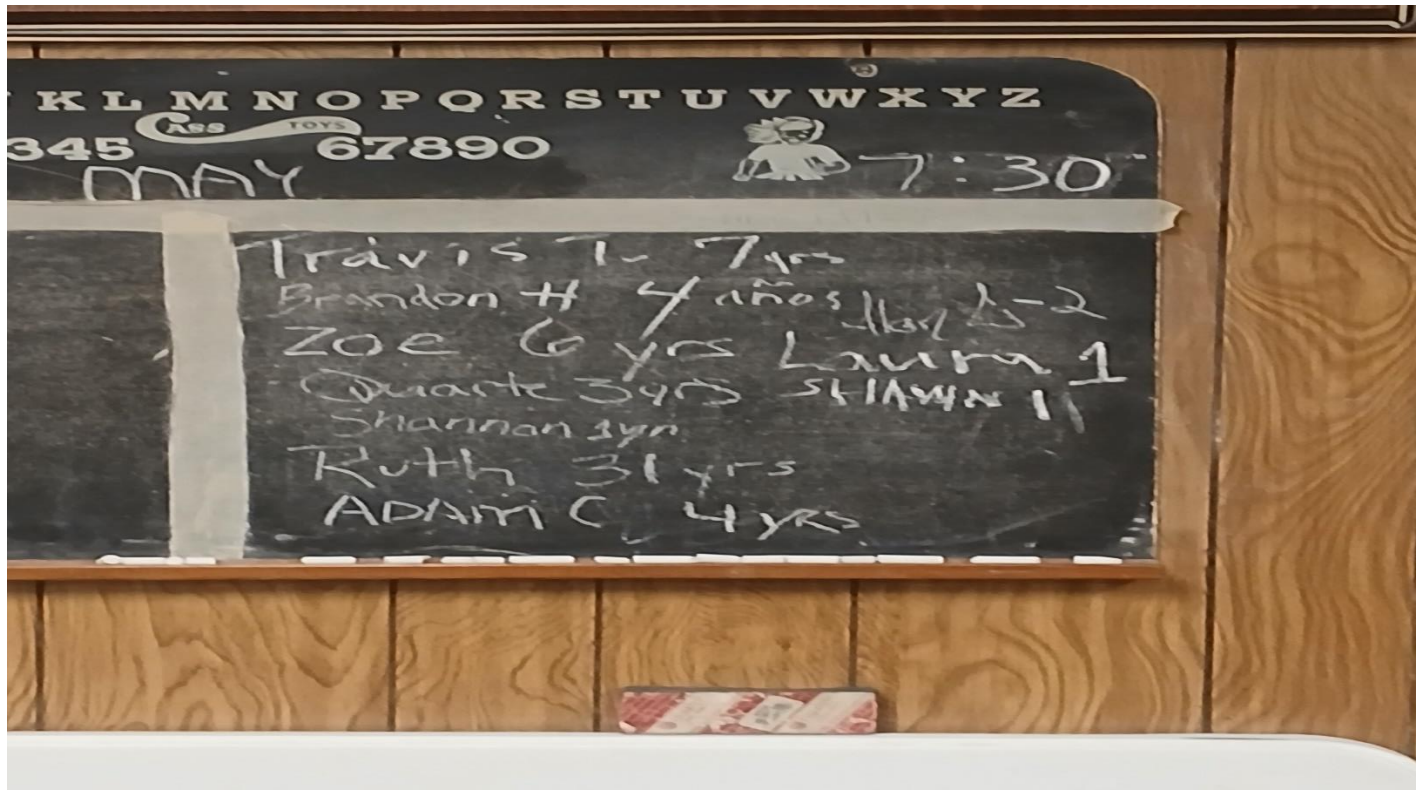 K L M N O P Q R S T U V W X Y Z
CASS TOYS
345 67890
MAY 7:30
Travis T. 7yrs
Brandon H 4 años
-2
Zoe 6 yrs Laura 1
3yrs SHAWN 11
Shannon 1yr
Ruth 31 yrs
ADAM C 4 yRS